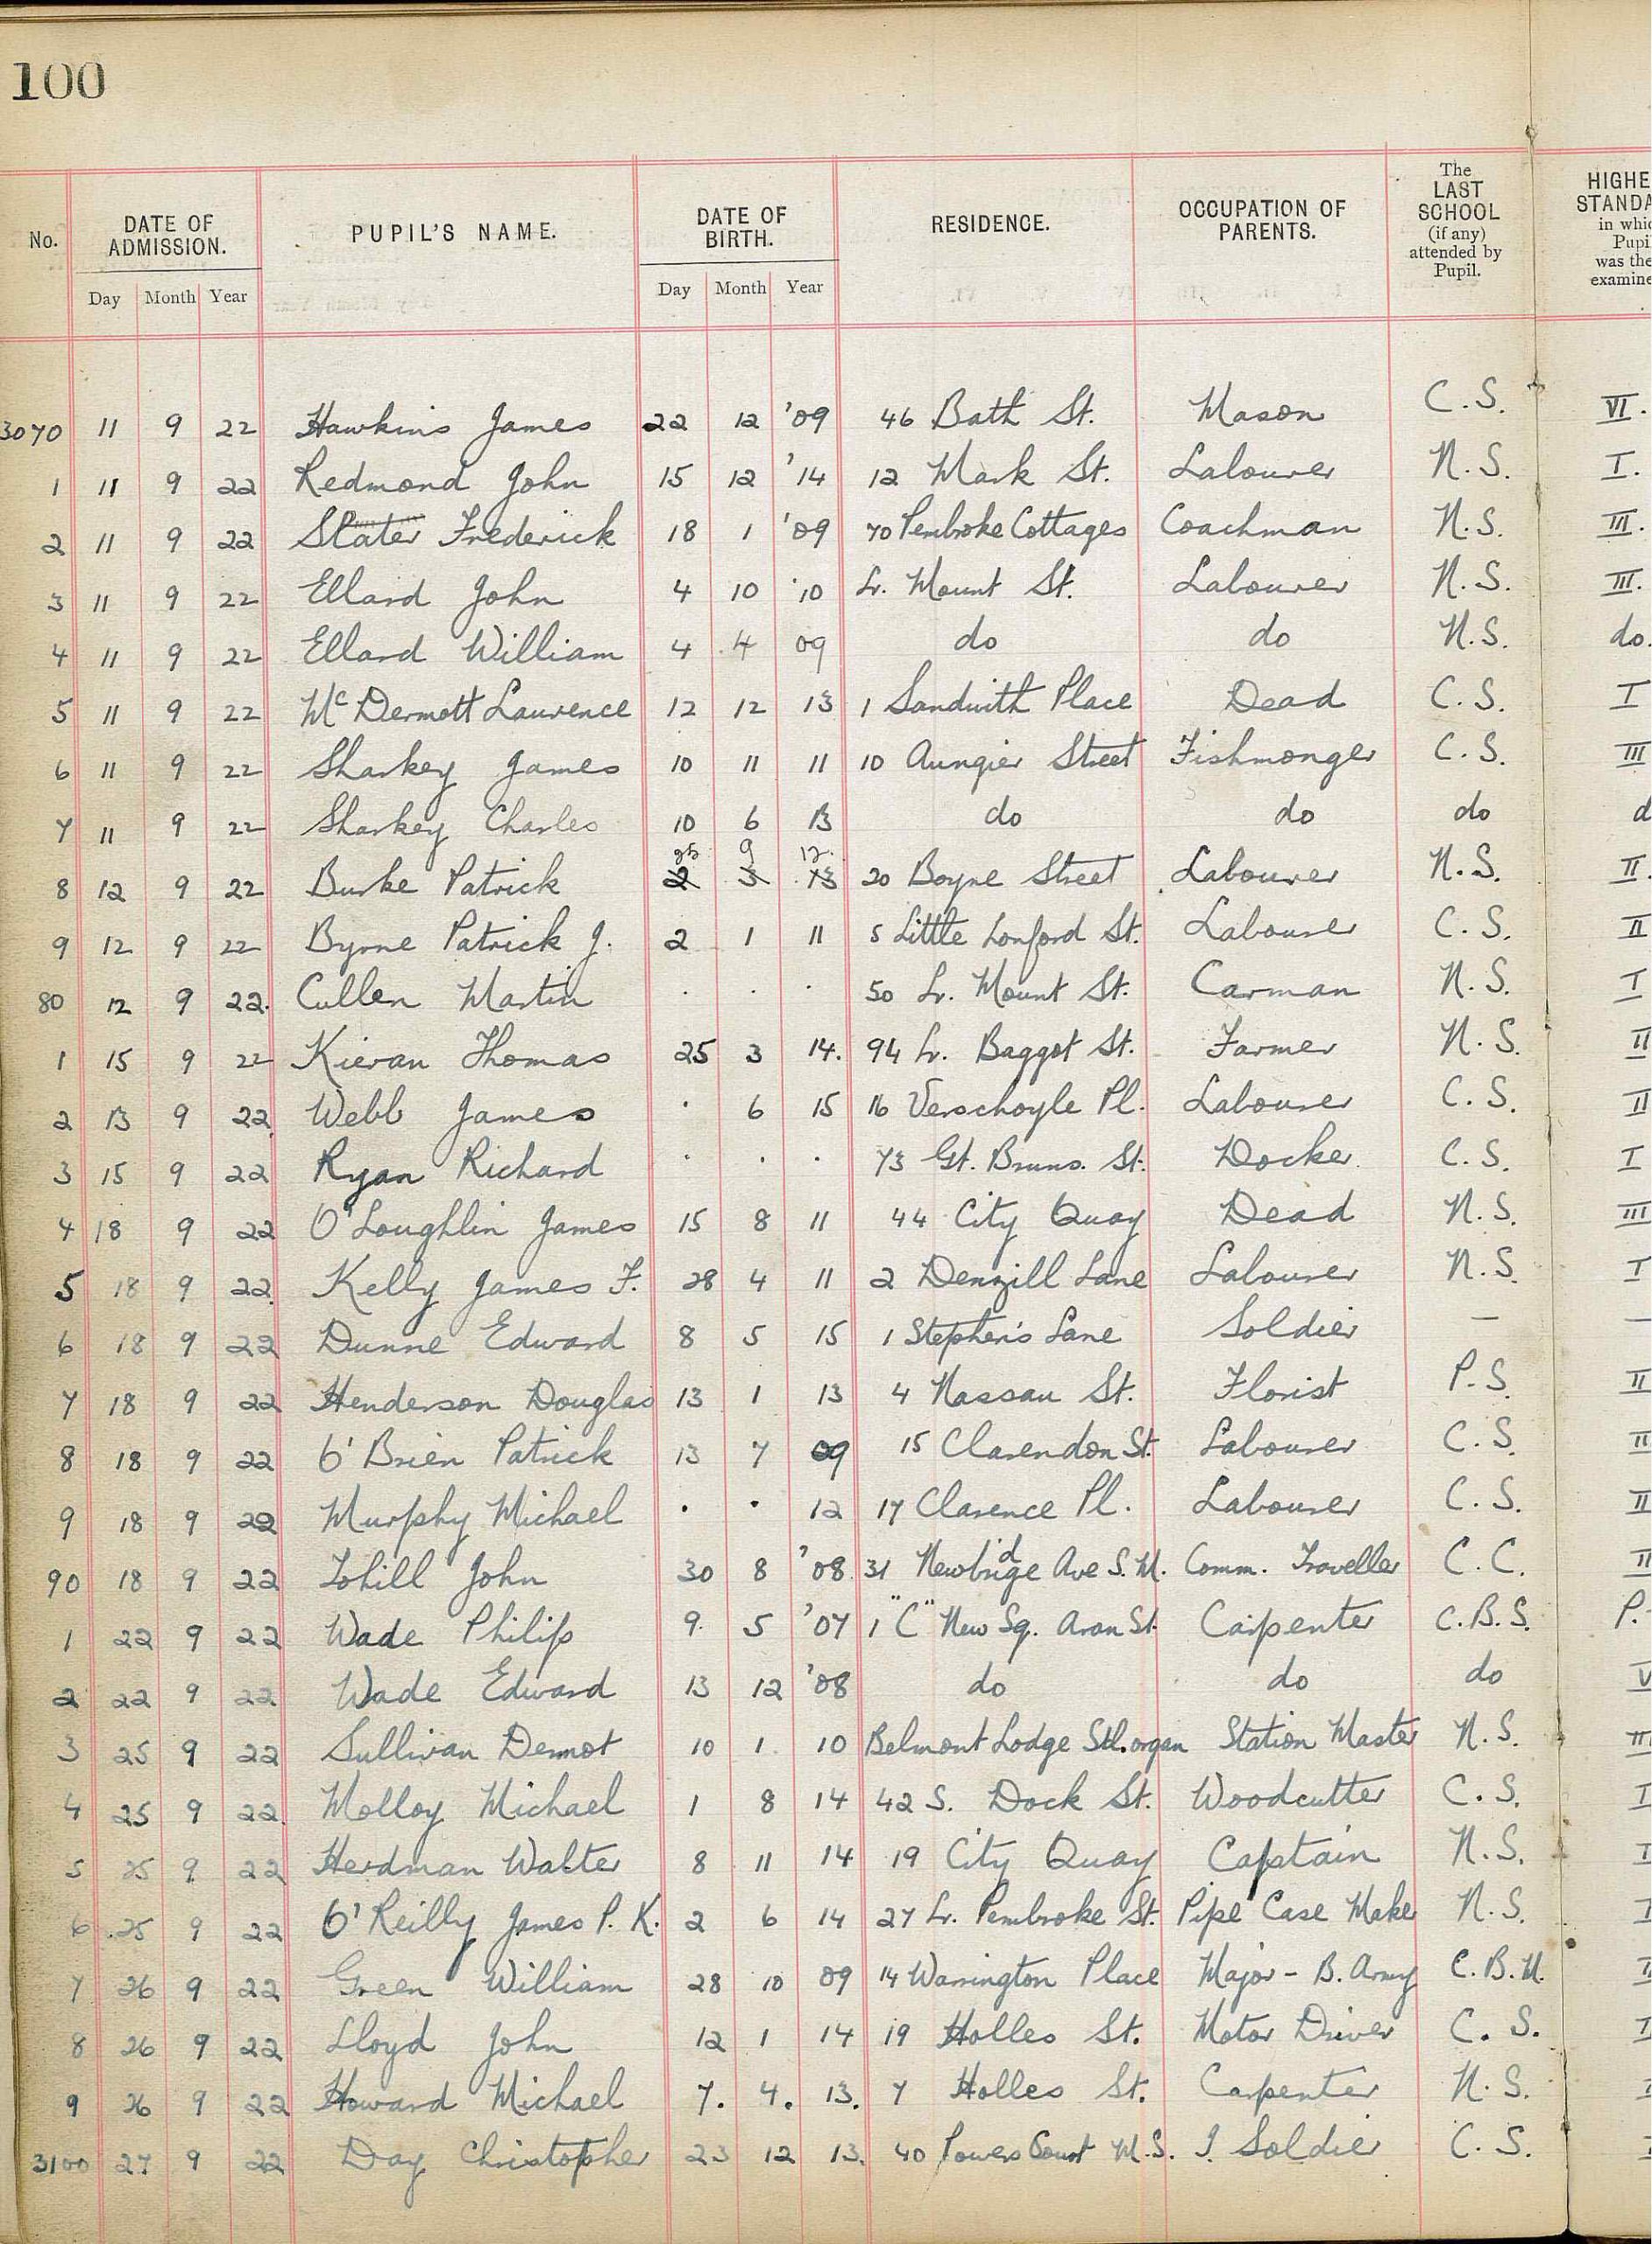 100
No. DATE OF ADMISSION. PUPIL'S NAME. DATE OF BIRTH. RESIDENCE. OCCUPATION OF PARENTS. The LAST SCHOOL (if any) attended by Pupil. HIGHE STANDA in whic Pupi was the examine
Day Month Year Day Month Year
3070 11 9 22 Hawkins James 22 12 '09 46 Bath St. Mason C.S. VI.
1 11 9 22 Redmond John 15 12 '14 12 Mark St. Labourer N.S. I.
2 11 9 22 Slater Frederick 18 1 '09 70 Pembroke Cottages Coachman N.S. III.
3 11 9 22 Ellard John 4 10 '10 Lr. Mount St. Labourer N.S. III.
4 11 9 22 Ellard William 4 4 09 do do N.S. do.
5 11 9 22 McDermott Laurence 12 12 13 1 Sandwith Place Dead C.S. I
6 11 9 22 Sharkey James 10 11 11 10 Aungier Street Fishmonger C.S. III
7 11 9 22 Sharkey Charles 10 6 13 do do do d
25 9 12.
8 12 9 22 Burke Patrick 2 3 13 20 Boyne Street Labourer N.S. II.
9 12 9 22 Byrne Patrick J. 2 1 11 5 Little Lonford St. Labourer C.S. II
80 12 9 22. Cullen Martin . . . 50 Lr. Mount St. Carman N.S. I
1 15 9 22 Kieran Thomas 25 3 14. 94 Lr. Baggot St. Farmer N.S. II
2 13 9 22 Webb James . 6 15 16 Verschoyle Pl. Labourer C.S. II
3 15 9 22 Ryan Richard . . . 73 Gt. Bruns. St. Docker C.S. I
4 18 9 22 O'Loughlin James 15 8 11 44 City Quay Dead N.S. III
5 18 9 22 Kelly James F. 28 4 11 2 Denzill Lane Labourer N.S. I
6 18 9 22 Dunne Edward 8 5 15 1 Stephen's Lane Soldier — —
7 18 9 22 Henderson Douglas 13 1 13 4 Nassau St. Florist P.S. II
8 18 9 22 O'Brien Patrick 13 7 09 15 Clarendon St. Labourer C.S. II
9 18 9 22 Murphy Michael . . 12 17 Clarence Pl. Labourer C.S. II
90 18 9 22 Tohill John 30 8 '08 31 Newbridge Ave S.M. Comm. Traveller C.C. II
1 22 9 22 Wade Philip 9. 5 '07 1 "C" New Sq. Aran St. Carpenter C.B.S. P.
2 22 9 22 Wade Edward 13 12 '08 do do do V
3 25 9 22 Sullivan Dermot 10 1 10 Belmont Lodge Station Master N.S. III
4 25 9 22 Molloy Michael 1 8 14 42 S. Dock St. Woodcutter C.S. I
5 25 9 22 Herdman Walter 8 11 14 19 City Quay Captain N.S. I
6 25 9 22 O'Reilly James P. K. 2 6 14 27 Lr. Pembroke St. Pipe Case Maker N.S. I
7 26 9 22 Green William 28 10 09 14 Warrington Place Major - B. Army C.B.M. I
8 26 9 22 Lloyd John 12 1 14 19 Holles St. Motor Driver C.S. I
9 26 9 22 Howard Michael 7. 4. 13. 7 Holles St. Carpenter N.S. I
3100 27 9 22 Day Christopher 23 12 13. 40 Powers Court M.S. I. Soldier C.S.